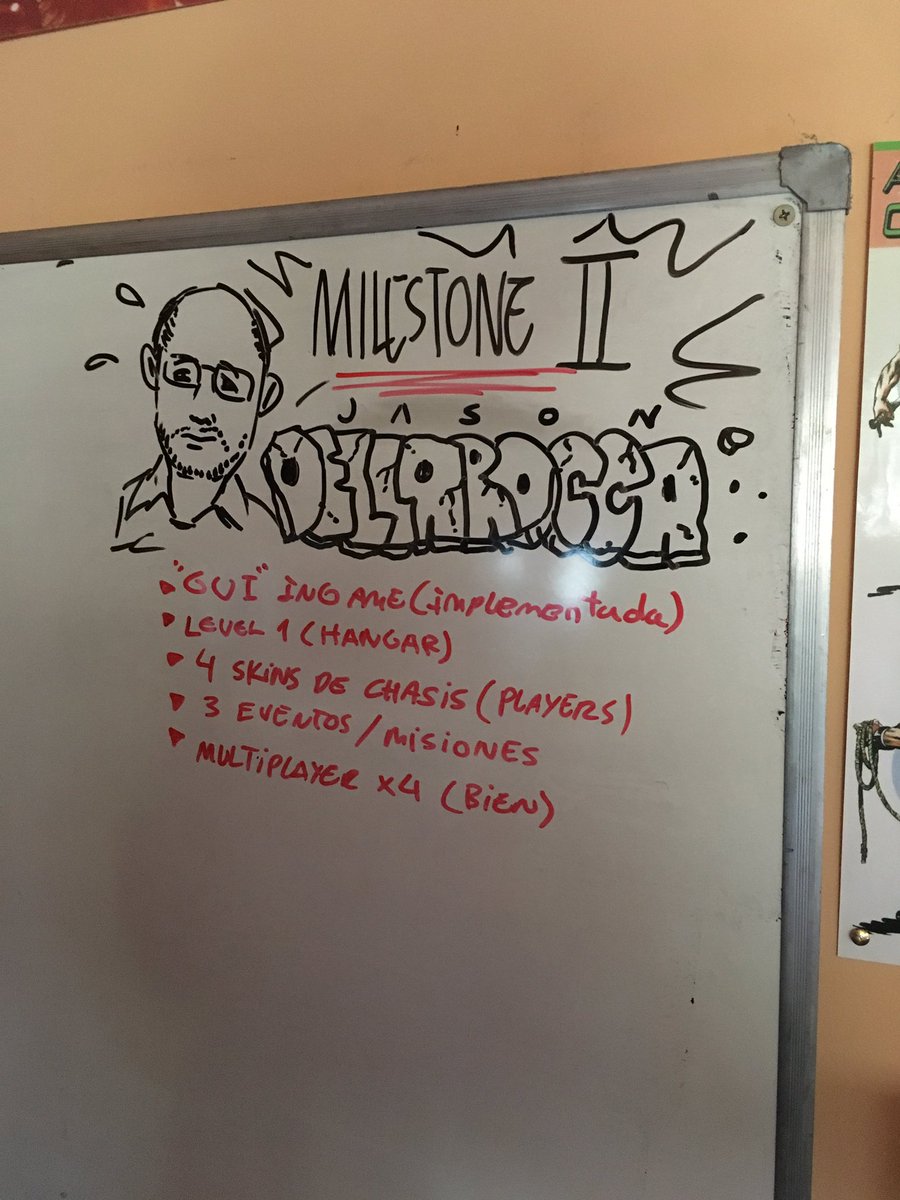 MILESTONE II
JASON
DELLAROCCA
"GUI" INGAME (implementada)
LEVEL 1 (HANGAR)
4 SKINS DE CHASIS (PLAYERS)
3 EVENTOS / MISIONES
MULTIPLAYER X4 (BIEN)